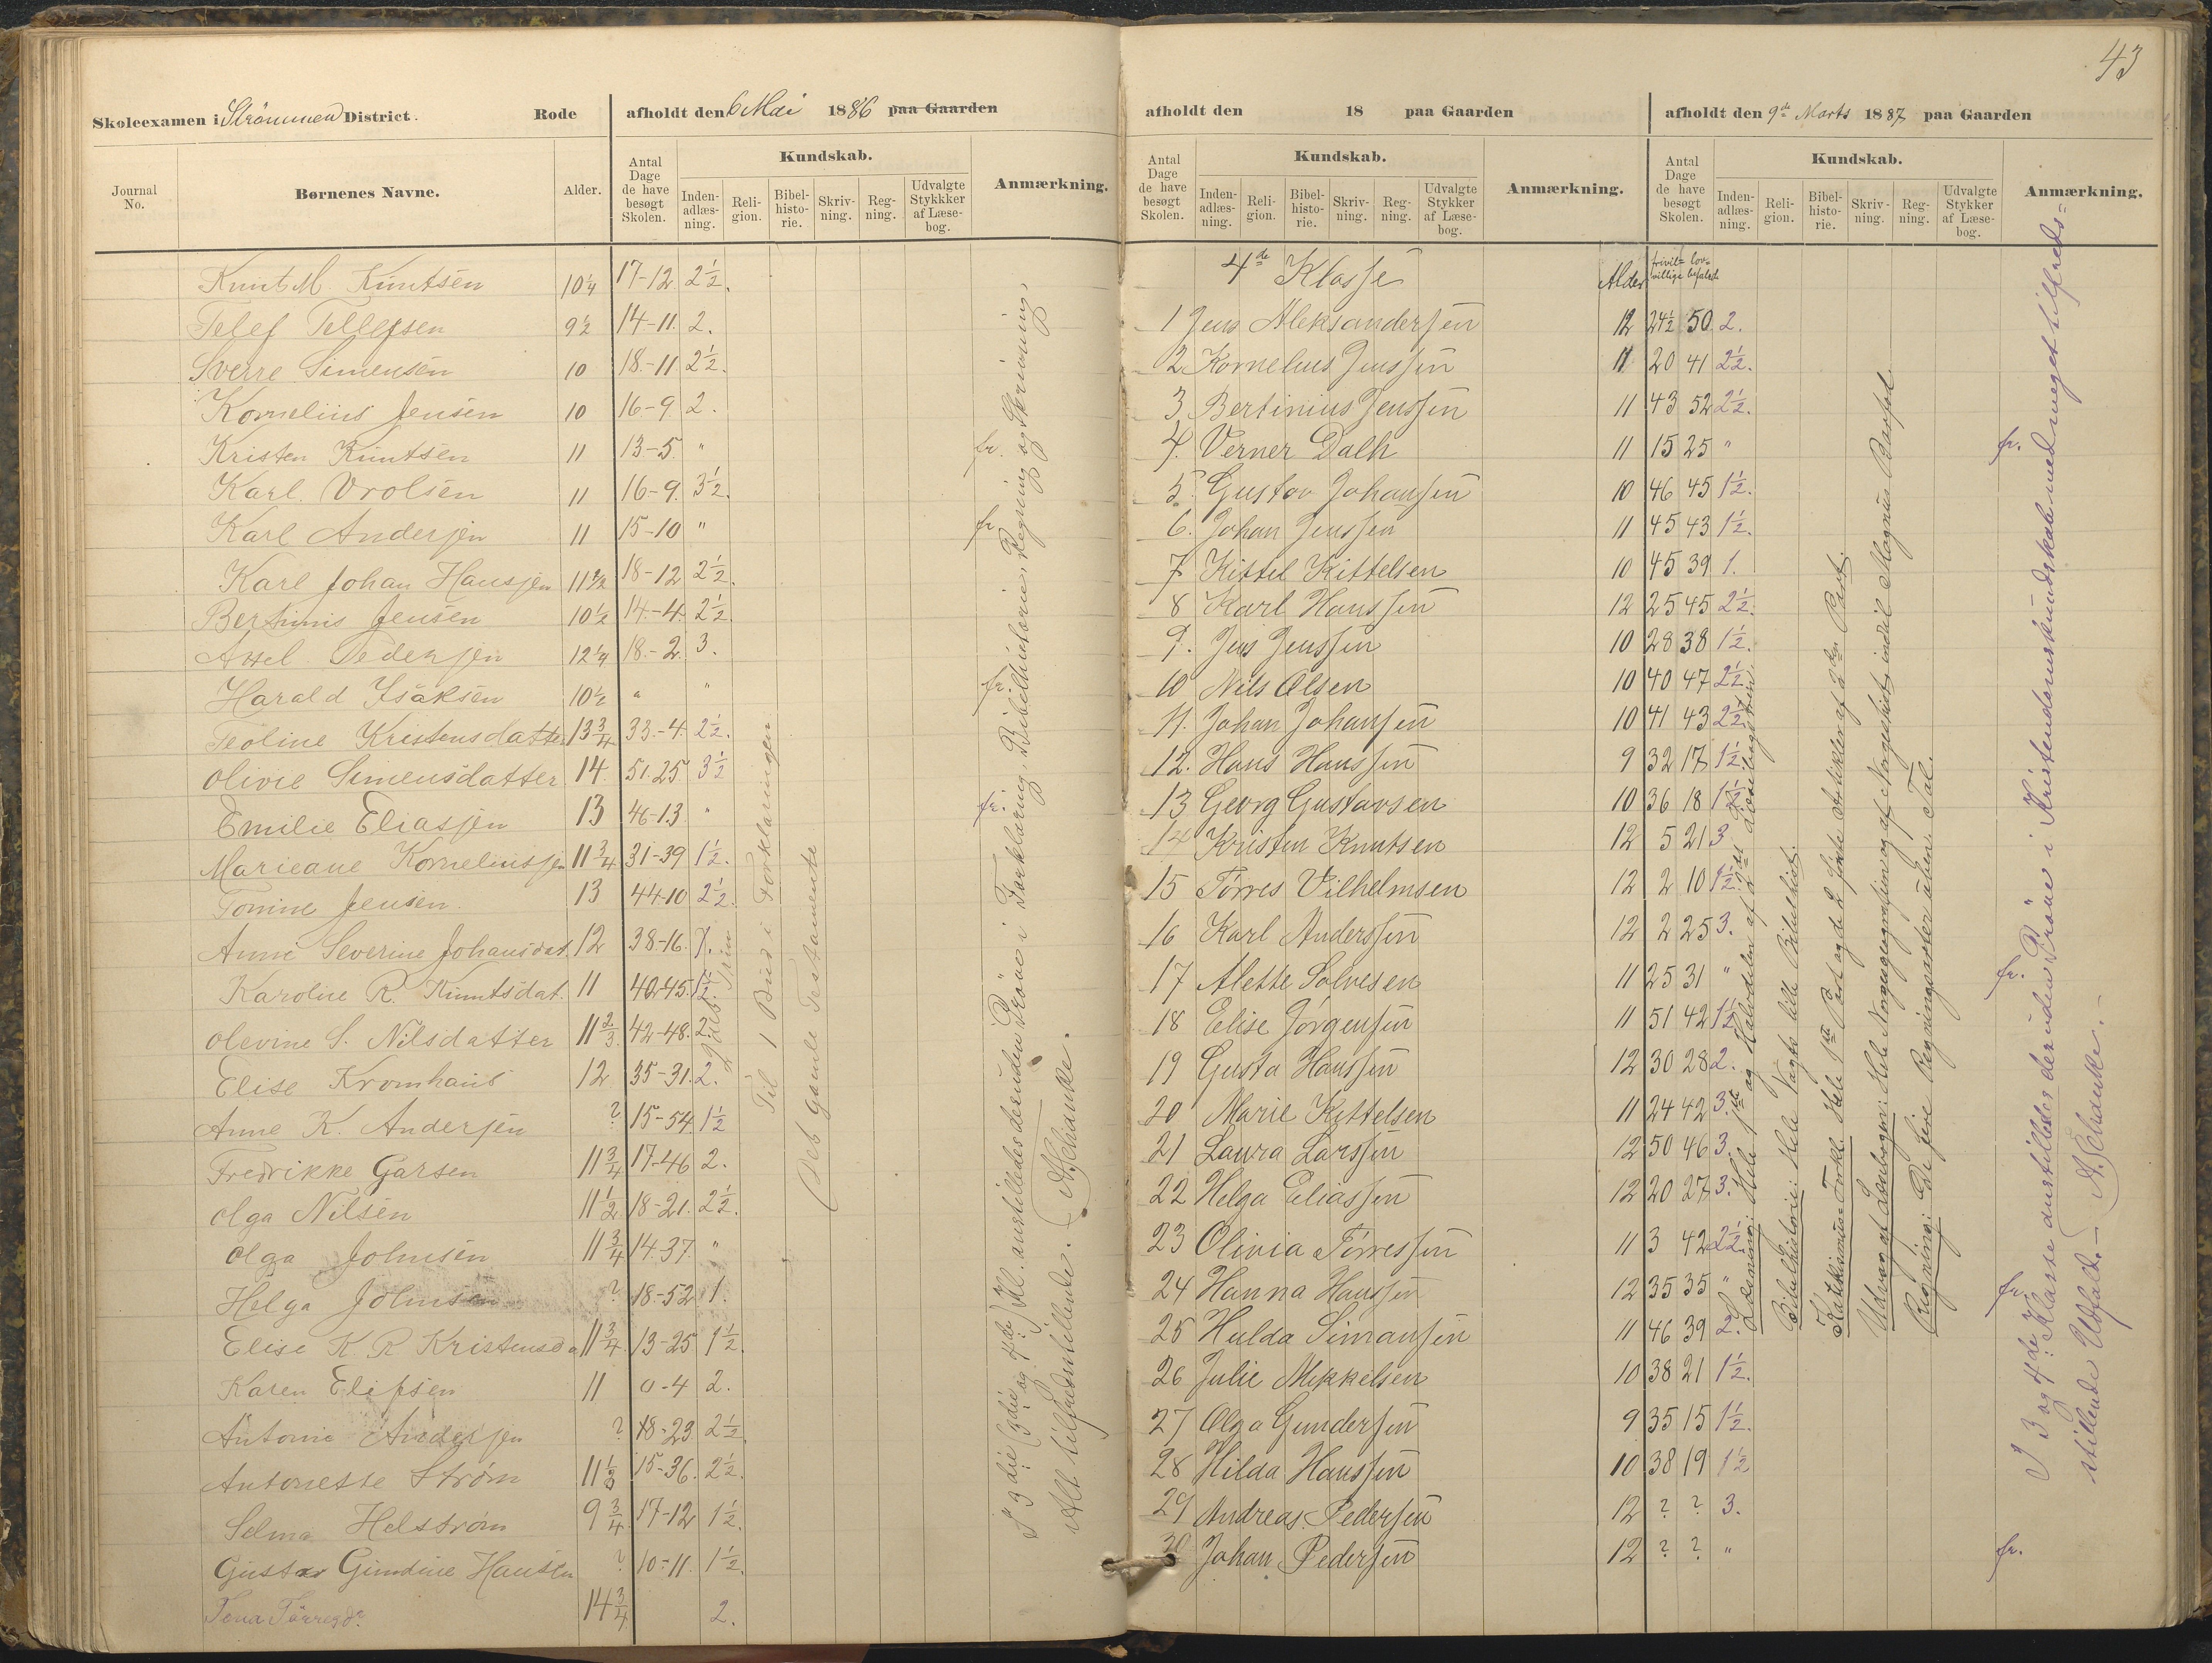 43
Skoleexamen i Strömmen District. Rode afholdt den 6 Mai 1886 paa Gaarden
Journal No. Børnenes Navne. Alder. Antal Dage de have besøgt Skolen. Kundskab. Inden-adlæs-ning. Reli-gion. Bibel-histo-rie. Skriv-ning. Reg-ning. Udvalgte Stykkker af Læse-bog. Anmærkning.
Knut M. Knutsen 10 1/4 17-12 2 1/2.
Telef Tellefsen 9 1/2 14-11. 2.
Sverre Simensen 10 18-11 2 1/2.
Kornelius Jensen 10 16-9. 2.
Kristen Kuntsen 11 13-5. " fr.
Karl. Vrolsen 11 16-9. 3 1/2.
Karl Andersen 11 15-10 " fr
Karl Johan Hansen 11 1/2 18-12 2 1/2.
Bertinius Jensen 10 1/2 14.-4. 2 1/2.
Axel Pedersen 12 1/4 18.-2. 3.
Harald Isaksen 10 1/2 " " fr.
Teoline Kristensdatter 13 3/4 33.-4. 2 1/2.
Olivie Simensdatter 14. 51.25 3 1/2
Emilie Eliassen 13 46-13. " fr.
Marieane Korneliussen 11 3/4 31-39 1 1/2.
Tomine Jensen. 13 44-10 2 1/2.
Anne Severine Johansdat. 12 38-16.
Karoline R. Knuntsdat. 11 42-45. 1 1/2.
Olevine S. Nilsdatter 11 2/3 42-48. 2.
Elise Kromhans 12 35-31. 2.
Anne K. Andersen ? 15-54. 1 1/2
Fredrikke Garsen 11 3/4 17-46 2.
Olga Nilsen 11 1/2 18-21. 2 1/2.
Olga Johnsen 11 3/4 14.37. "
Helga Johnsen ? 18-52 1.
Elise K. R Kristensda 11 3/4 13-25 1 1/2.
Karen Elefsen 11 0-4 2.
Antonie Andersen ? 18-23 2 1/2.
Antonette Strøm 15-36. 2 1/2.
Selma Helstrøm 9 3/4 17-12 1 1/2.
Gustav Gundine Hansen ? 10-11. 1 1/2.
Tona Törresdr. 14 3/4 2.
Til 1 Bud i Forklaringen
(Det gamle Testamente
I 3die (3die og 4de) Kl. anstilledes desuden Pröve i Forklaring, Bibelhistorie, Regning og Skrivning.
Alt tilfredsstillende. A. Schanke.
afholdt den 18 paa Gaarden
Antal Dage de have besøgt Skolen. Kundskab. Inden-adlæs-ning. Reli-gion. Bibel-histo-rie. Skriv-ning. Reg-ning. Udvalgte Stykker af Læse-bog. Anmærkning.
afholdt den 9de Marts 1887 paa Gaarden
Antal Dage de have besøgt Skolen. Kundskab. Inden-adlæs-ning. Reli-gion. Bibel-histo-rie. Skriv-ning. Reg-ning. Udvalgte Stykker af Læse-bog. Anmærkning.
4de Klasse Alder frivil-villige lov-befalede
1 Jens Aleksandersen 12 24 1/2 50 2.
2 Kornelius Jenssen 11 20 41 2 1/2.
3. Bertinius Jenssen 11 43 52 2 1/2.
4. Verner Dalh 11 15 25 " fr.
5. Gustav Johansen 10 46 45 1 1/2.
6. Johan Jenssen 11 45 43 1 1/2.
7 Kittel Kittelsen 10 45 39 1.
8 Karl Hanssen 12 25 45 2 1/2.
9. Jens Jenssen 10 28 38 1 1/2.
10 Nils Olsen 10 40 47 2 1/2.
11. Johan Johansen 10 41 43 2 1/2
12. Hans Hanssen 9 32 17 1 1/2.
13 Georg Gustavsen 10 36 18 1 1/2.
14 Kristen Knutsen 12 5 21 3
15 Törres Vilhelmsen 12 2 10 1 1/2.
16 Karl Anderssen 12 2 25 3.
17 Alette Solvesen 11 25 31 " fr.
18 Elise Jörgensen 11 51 42 1 1/2
19 Gusta Hanssen 12 30 28 2.
20 Marie Kittelsen 11 24 42 3.
21 Laura Larssen 12 50 46 3.
22 Helga Eliassen 12 20 27 3.
23 Olivia Törressen 11 3 42 2 1/2.
24 Hanna Hanssen 12 35 35 " fr.
25 Hulda Simansen 11 46 39 2.
26 Julie Mikkelsen 10 38 21 1 1/2.
27 Olga Gundersen 9 35 15 1 1/2.
28 Hilda Hanssen 10 38 19 1 1/2
29 Andreas Pedersen 12 ? ? 3.
30 Johan Pedersen 12 ? ? " fr.
Læsning: Hele 1ste og Halvdelen af 2det Læsebogstrin
Bibelhistorie: Hele Vogts lille Bibelhist.
Katekismus-Forkl. Hele 1ste Part og de 2 förste Artikler af 2den Part.
Udvalg af Læsebogen: Hele Norgesgeografien og af Norgeshist. indtil Magnus Barfod.
Regning: De fire Regningsarter i uben. Tal.
I 3 og 4de Klasse anstilledes desuden Pröve i Kristendomskundskab med meget tilfreds-
stillende Udfald. – A. Schanke. –